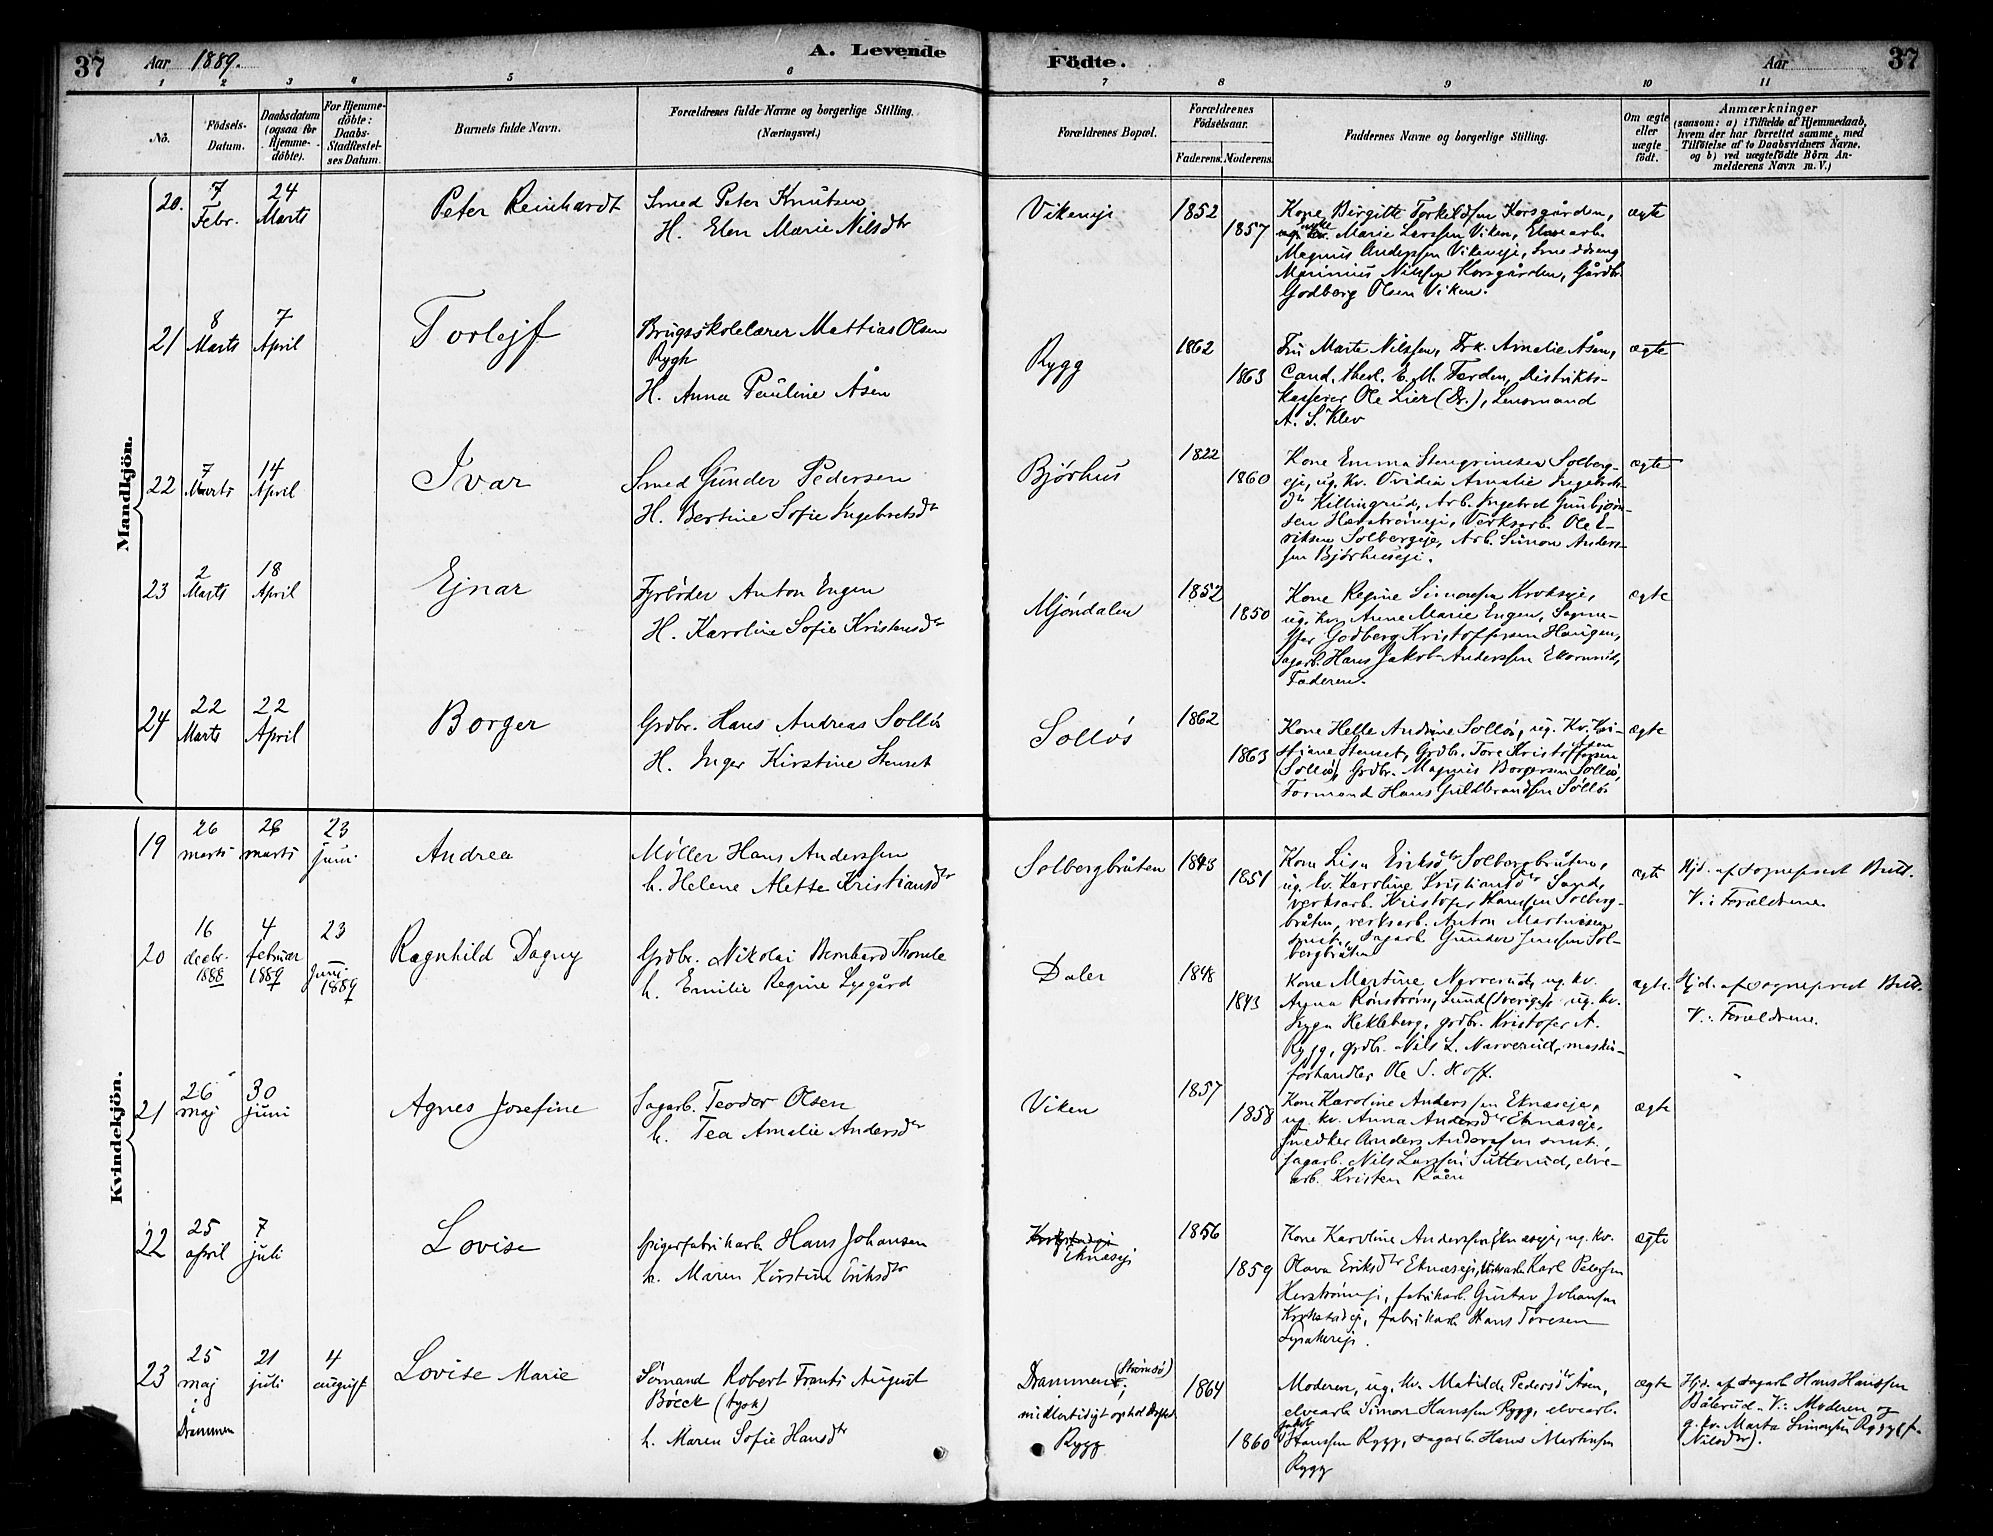 37 Aar 1889. A. Levende Födte. Aar 37
1 2 3 4 5 6 7 8 9 10 11
No. Födsels-Datum. Daabsdatum (ogsaa for Hjemme-döbte). For Hjemme-döbte: Daabs-Stadfæstel-ses Datum. Barnets fulde Navn. Forældrenes fulde Navne og borgerlige Stilling. (Næringsvei.) Forældrenes Bopæl. Forældrenes Födselsaar. Faderens. Moderens. Faddernes Navne og borgerlige Stilling. Om ægte eller uægte födt. Anmærkninger (saasom: a) i Tilfælde af Hjemmedaab, hvem der har forrettet samme, med Tilföielse af to Daabsvidners Navne, og b) ved uægtefödte Börn An-melderens Navn m. V.)
Mandkjön.
20. 7 Febr. 24 Marts Peter Reinhardt
Smed Peter Knutsen
H. Elen Marie Nilsdtr
Vikeneje 1852 1857
Kone Birgitte Torkeldsen Korsgården,
Marie Larssen Viken, Elvearb.
Magnus Anderssen Vikeneje, Smeddreng
Marinius Nilssen Korsgården, Gårdbr.
Godberg Olsen Viken.
ægte
21 8 Marts 7 April Torlejf
Brugsskolelærer Mattias Olsen
Rygh
H. Anna Pauline Åsen
Rygg 1862 1863
Fru Marte Nilssen, Frk. Amalie Åsen,
Cand. theol. E. M. Færden, Distrikts-
kasserer Ole Lier (Dr.), Lensmand
A. S. Klev
ægte
22 7 Marts 14 April Ivar
Smed Gunder Pedersen
H. Bertine Sofie Ingebretsdtr
Bjørhus 1822 1860
Kone Emma Stengrimsen Solberg-
eje, ug. Kv. Ovidia Amalie Ingebrets-
dtr Killingrud, Arb. Ingebret Gunbjørn-
sen Hærstrømeje, Verksarb. Ole E-
riksen Solbergeje, Arb. Simon Anders-
sen Bjørhuseje.
ægte
23 2 Marts 18 April Ejnar
Fyrbøder Anton Engen
H. Karoline Sofie Kristensdtr
Mjøndalen 1852 1850
Kone Regine Simonsen Krokseje,
ug. Kv. Anne Marie Engen, Sagme-
ster Godberg Kristoffersen Haugen,
Sagarb. Hans Jakob Anderssen Ekornrud,
Faderen.
ægte
24 22 Marts 22 April Borger
Grdbr. Hans Andreas Solløs
H. Inger Kirstine Stenset
Solløs 1862 1863
Kone Helle Andrine Solløs, ug. Kv. Kri-
stiane Stenset, Grdbr. Tore Kristoffersen
Solløs, Grdbr. Magnus Borgersen Solløs,
Formand Hans Guldbrandsen Solløs
ægte
Kvindekjön.
19 26 marts 26 marts 23 juni Andrea
Møller Hans Anderssen
h. Helene Mette Kristiansdtr
Solbergbråten 1843 1851
Kone Lisa Eriksdtr Solbergbråten,
ug. kv. Karoline Kristiansdtr Sand,
verksarb. Kristofer Hanssen Solberg-
bråten, verksarb. Anton Martinsen
smst., sagarb. Gunder Jenssen Sol-
bergbråten
ægte
Hjd. af sogneprest Bull.
V.: Forældrene.
20 16 decbr. 1888 4 februar 1889 23 Juni 1889 Ragnhild Dagny
Grdbr. Nikolai Bernhard Thomle
h. Emilie Regine Lysgård
Daler 1848 1843
Kone Martine Narverud, ug. kv.
Agna Rönström, Lund (Sverige), ug. kv.
Hekleberg, grdbr. Kristofer A.
Rygg, grdbr. Nils L. Narverud, maskin-
forhandler Ole S. Hoff.
ægte.
Hjd. af sogneprest Bull.
V.: Forældrene.
21 26 maj 30 juni Agnes Josefine
Sagarb. Teodor Olsen
h. Tea Amalie Andersdtr
Viken 1857 1858
Kone Karoline Anderssen Eknæseje,
ug. kv. Anna Andersdtr Eknæseje,
snedker Anders Anderssen smst.,
sagarb. Nils Larssen Sutterud, elve-
arb. Kristen Råen
ægte
22 25 april 7 juli Lovise
spigerfabrikarb. Hans Johansen
h. Maren Kirstine Eriksdtr
Eknæseje 1856 1859
Kone Karoline Anderssen Eknæseje, ug. kv.
Olava Eriksdtr Eknæseje, Karl Peterssen
Herstrømeje, fabrikarb. Gustav Johansen
Krokstadeje, fabrikarb. Hans Toresen
ægte
23 25 maj i Drammen 21 juli 4 august Lovise Marie
Sömand Robert Frants August
Böeck (tysk)
h. Maren Sofie Hansdtr
Drammen (Strømsø);
midlertidigt opholdssted
Rygg
1864 1860
Moderen, ug. kv. Matilde Pedersdtr Åsen,
elvearb. Simon Hanssen Rygg, elvearb.
Jakob Hanssen Rygg, sagarb. Hans Martinsen
Rygg
ægte
Hjd. af sagarb. Hans Hanssen
Bålerud. V.: Moderen og
g. kv. Marta Simonsen Rygg (f.
Nilsdtr).